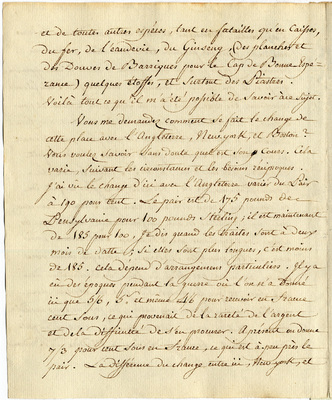 et de toutes autres espèces, tant en futailles qu'en Caisses,
du fer, de l'eaudevie, du Ginseng (des planches et
des Douves de Barriques pour le Cap de Bonne Espe-
rance) quelques étoffes, et Surtout des Piastres.
Voilà tout ce qu'il m'a été possible de Savoir à ce Sujet.
Vous me demandez comment se fait le change de
cette place avec l'Angleterre, New york, et Boston?
Vous voulez savoir sans doute quel est son Cours. Cela
varie, suivant les circonstances et les besoins réciproques.
J'ai vu le change d'ici avec l'Angleterre varier du Pair
à 190 pour cent. Le pair est de 175 pounds de
Pensylvanie pour 100 pounds Sterling; il est maintenant
de 185 pour 100. Je dis quand les traites sont à deux
mois de datte; Si elles sont plus longues, c'est moins
de 185. cela dépend d'arrangemens particuliers. Il y a
eu des époques pendant la guerre où l'on n'a donné
ici que 56, 5 et même 46 pour recevoir en France
cent Sous, ce qui provenait de la rareté de l'argent
et de la difficulté de s'en procurer. A présent on donne
7/3 pour cent Sous en France, ce qui est à peu près le
pair. La différence du change entre ici, New york, et